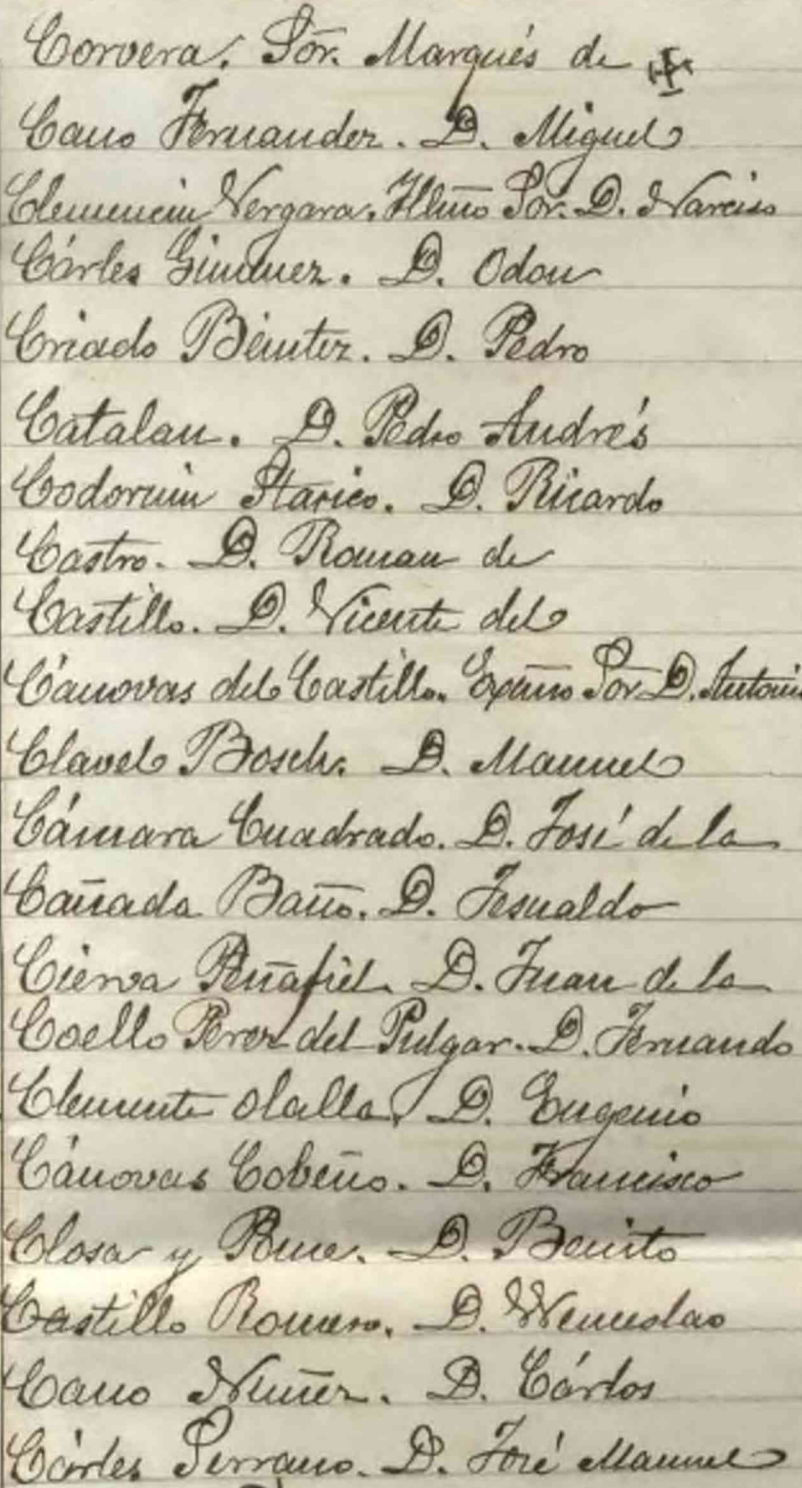 Corvera. Sor. Marqués de
Cano Fernandez. D. Miguel
Clemencin Vergara. Illmo Sor. D. Narciso
Cárles Gimenez. D. Odon
Criado Bénitez. D. Pedro
Catalan. D. Pedro Andrés
Codorniu Starico. D. Ricardo
Castro. D. Roman de
Castillo. D. Vicente del
Cánovas del Castillo. Exmo Sor D. Antonio
Clavel Bosch. D. Manuel
Cámara Cuadrado. D. José de la
Cañada Baño. D. Jesualdo
Cierva Peñafiel. D. Juan de la
Coello Perez del Pulgar. D. Fernando
Clemente Olalla. D. Eugenio
Cánovas Cobeño. D. Francisco
Closa y D. Benito
Castillo Romero. D. Wenceslao
Cano Nuñez. D. Cárlos
Cárles Serrano. D. José Manuel